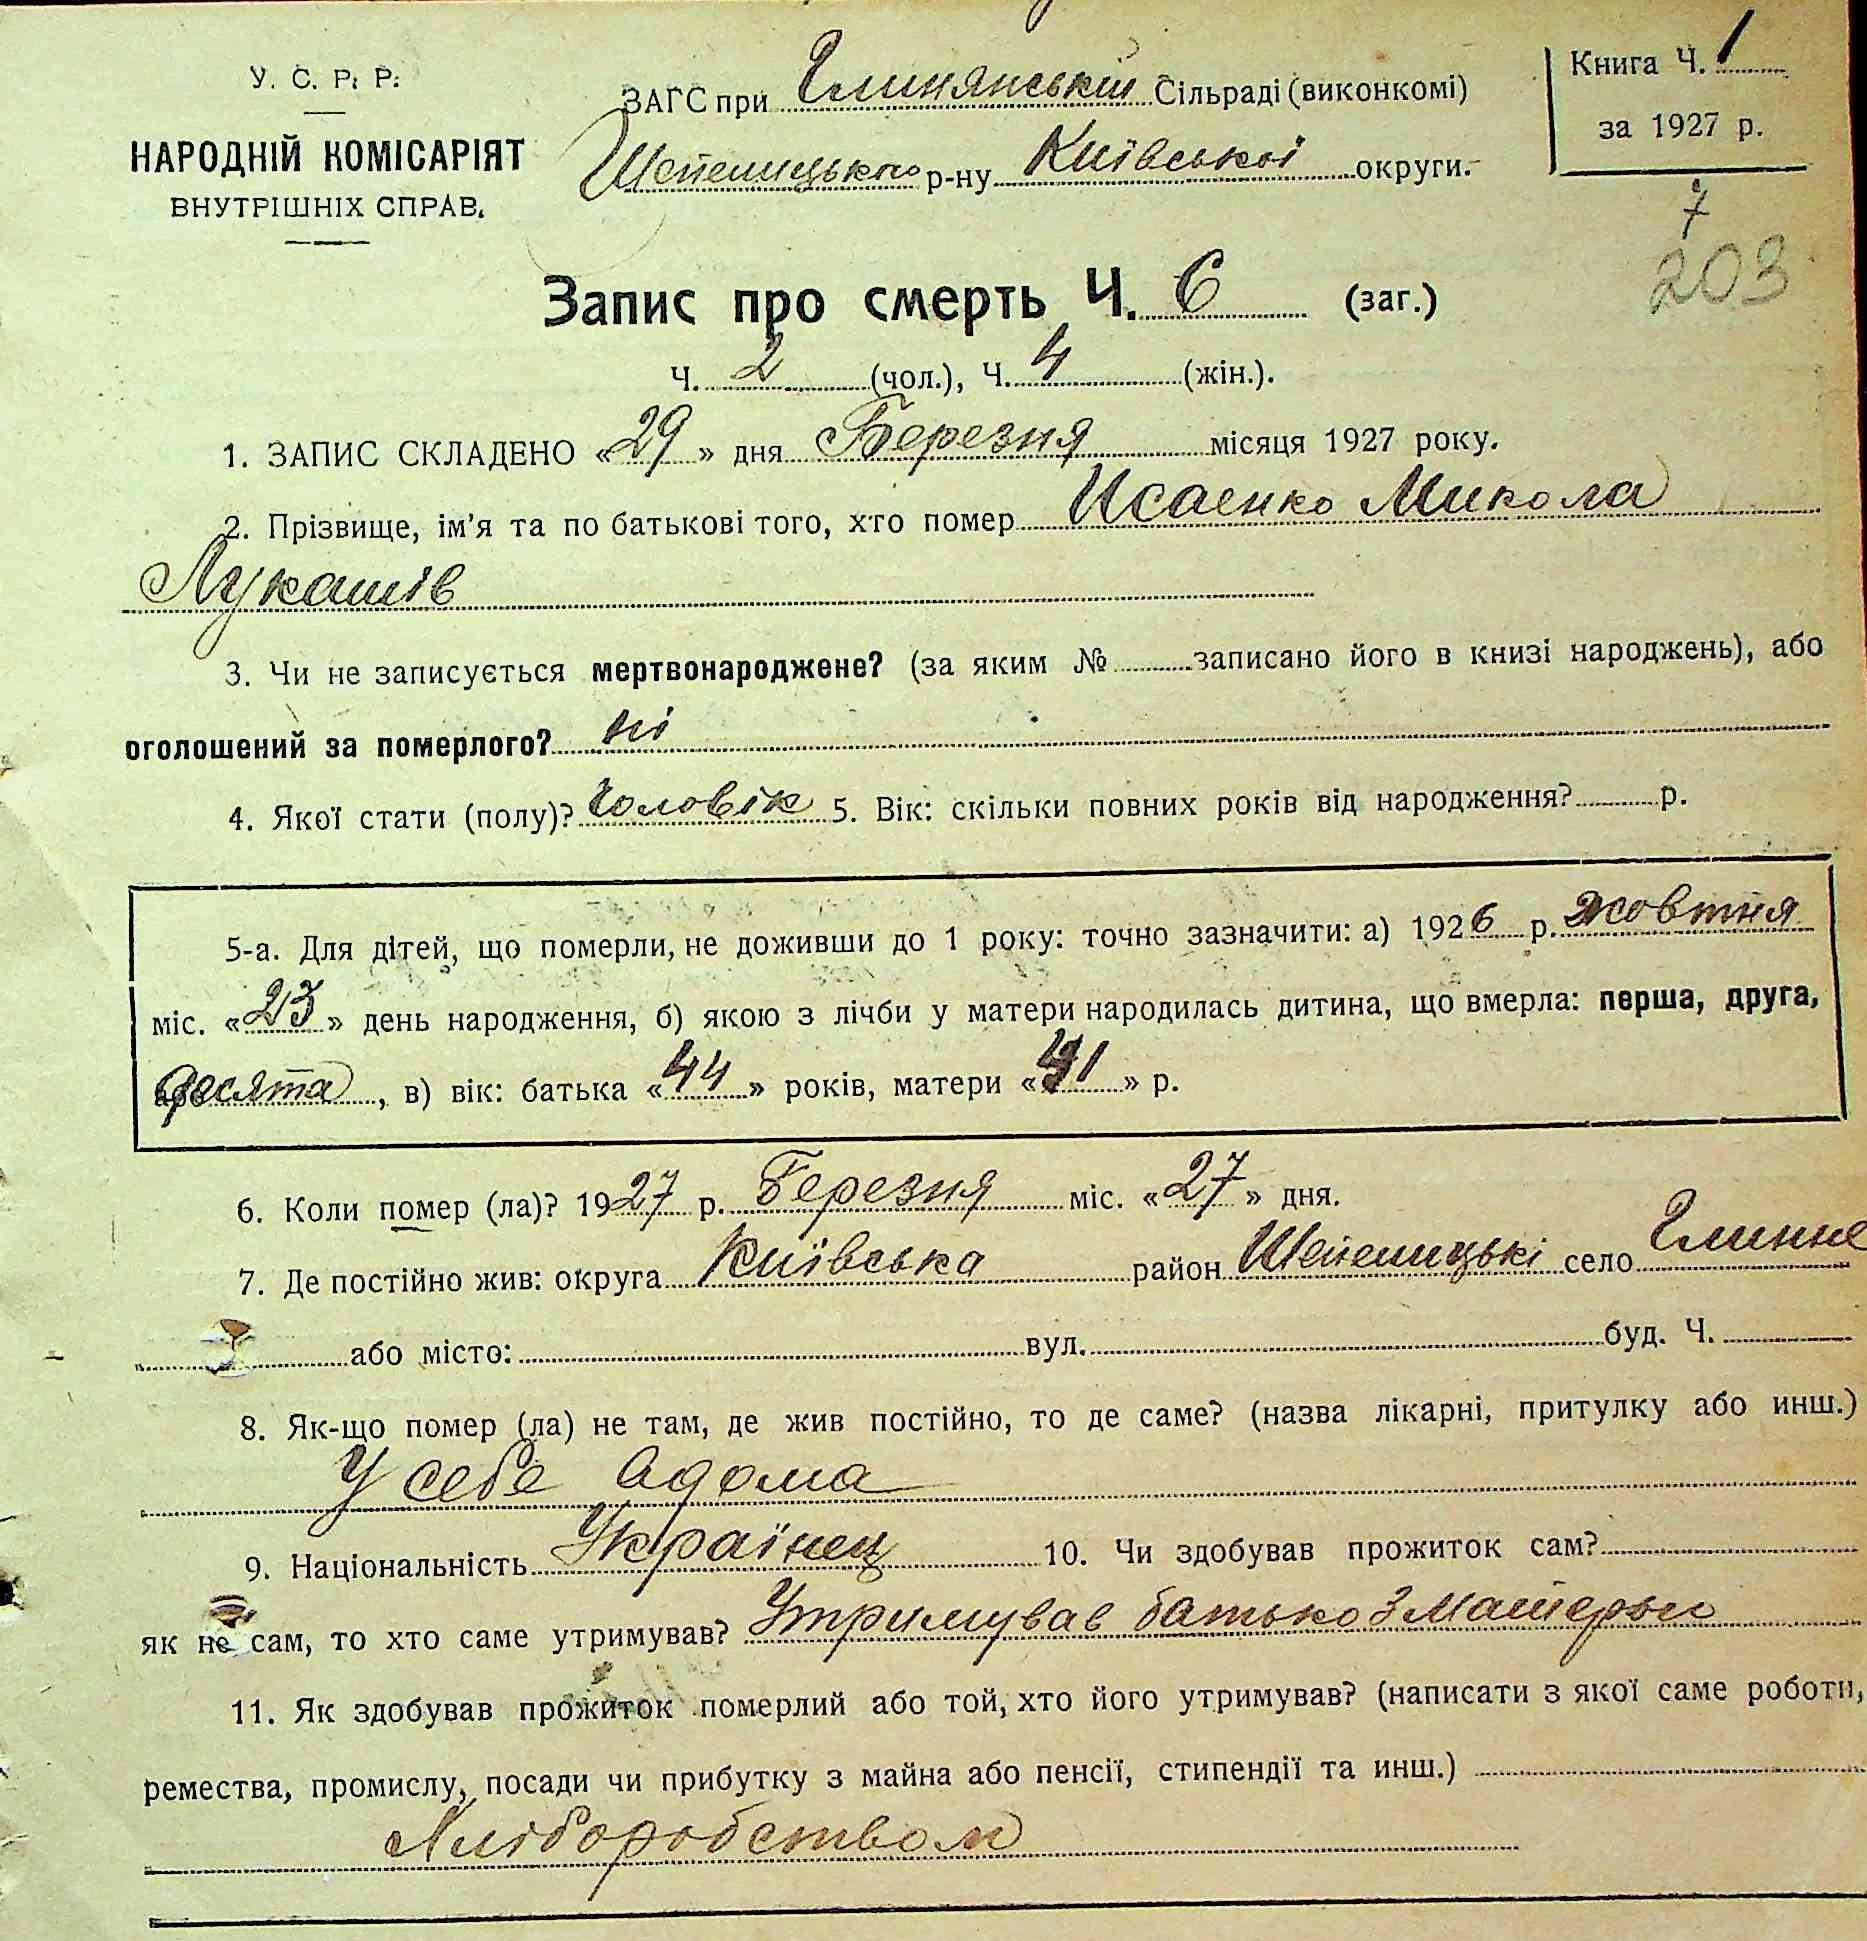 У. С. Р. Р.
НАРОДНІЙ КОМІСАРІЯТ
ВНУТРІШНІХ СПРАВ.
ЗАГС при Глинянській Сільраді (виконкомі)
Шепелицького р-ну Київської округи.
Книга Ч. 1
за 1927 р.
7
203
Запис про смерть Ч. 6 (заг.)
Ч. 2 (чол.), Ч. 4 (жін.).
1. ЗАПИС СКЛАДЕНО «29» дня Березня місяця 1927 року.
2. Прізвище, ім'я та по батькові того, хто помер Исаенко Микола
Лукашів
3. Чи не записується мертвонароджене? (за яким № записано його в книзі народжень), або
оголошений за померлого? ні
4. Якої стати (полу)? Чоловік 5. Вік: скільки повних років від народження? р.
5-а. Для дітей, що померли, не доживши до 1 року: точно зазначити: а) 1926 р. жовтня
міс. «23» день народження, б) якою з лічби у матери народилась дитина, що вмерла: перша, друга,
або десята, в) вік: батька «44» років, матери «41» р.
6. Коли помер (ла)? 1927 р. Березня міс. «27» дня.
7. Де постійно жив: округа Київська район Шепелицькі село Глинне
або місто: вул. буд. Ч.
8. Як-що помер (ла) не там, де жив постійно, то де саме? (назва лікарні, притулку або инш.)
У себе вдома
9. Національність Українец 10. Чи здобував прожиток сам?
як не сам, то хто саме утримував? Утримував батько з Матерью
11. Як здобував прожиток померлий або той, хто його утримував? (написати з якої саме роботи,
ремества, промислу, посади чи прибутку з майна або пенсії, стипендії та инш.)
Хліборобством